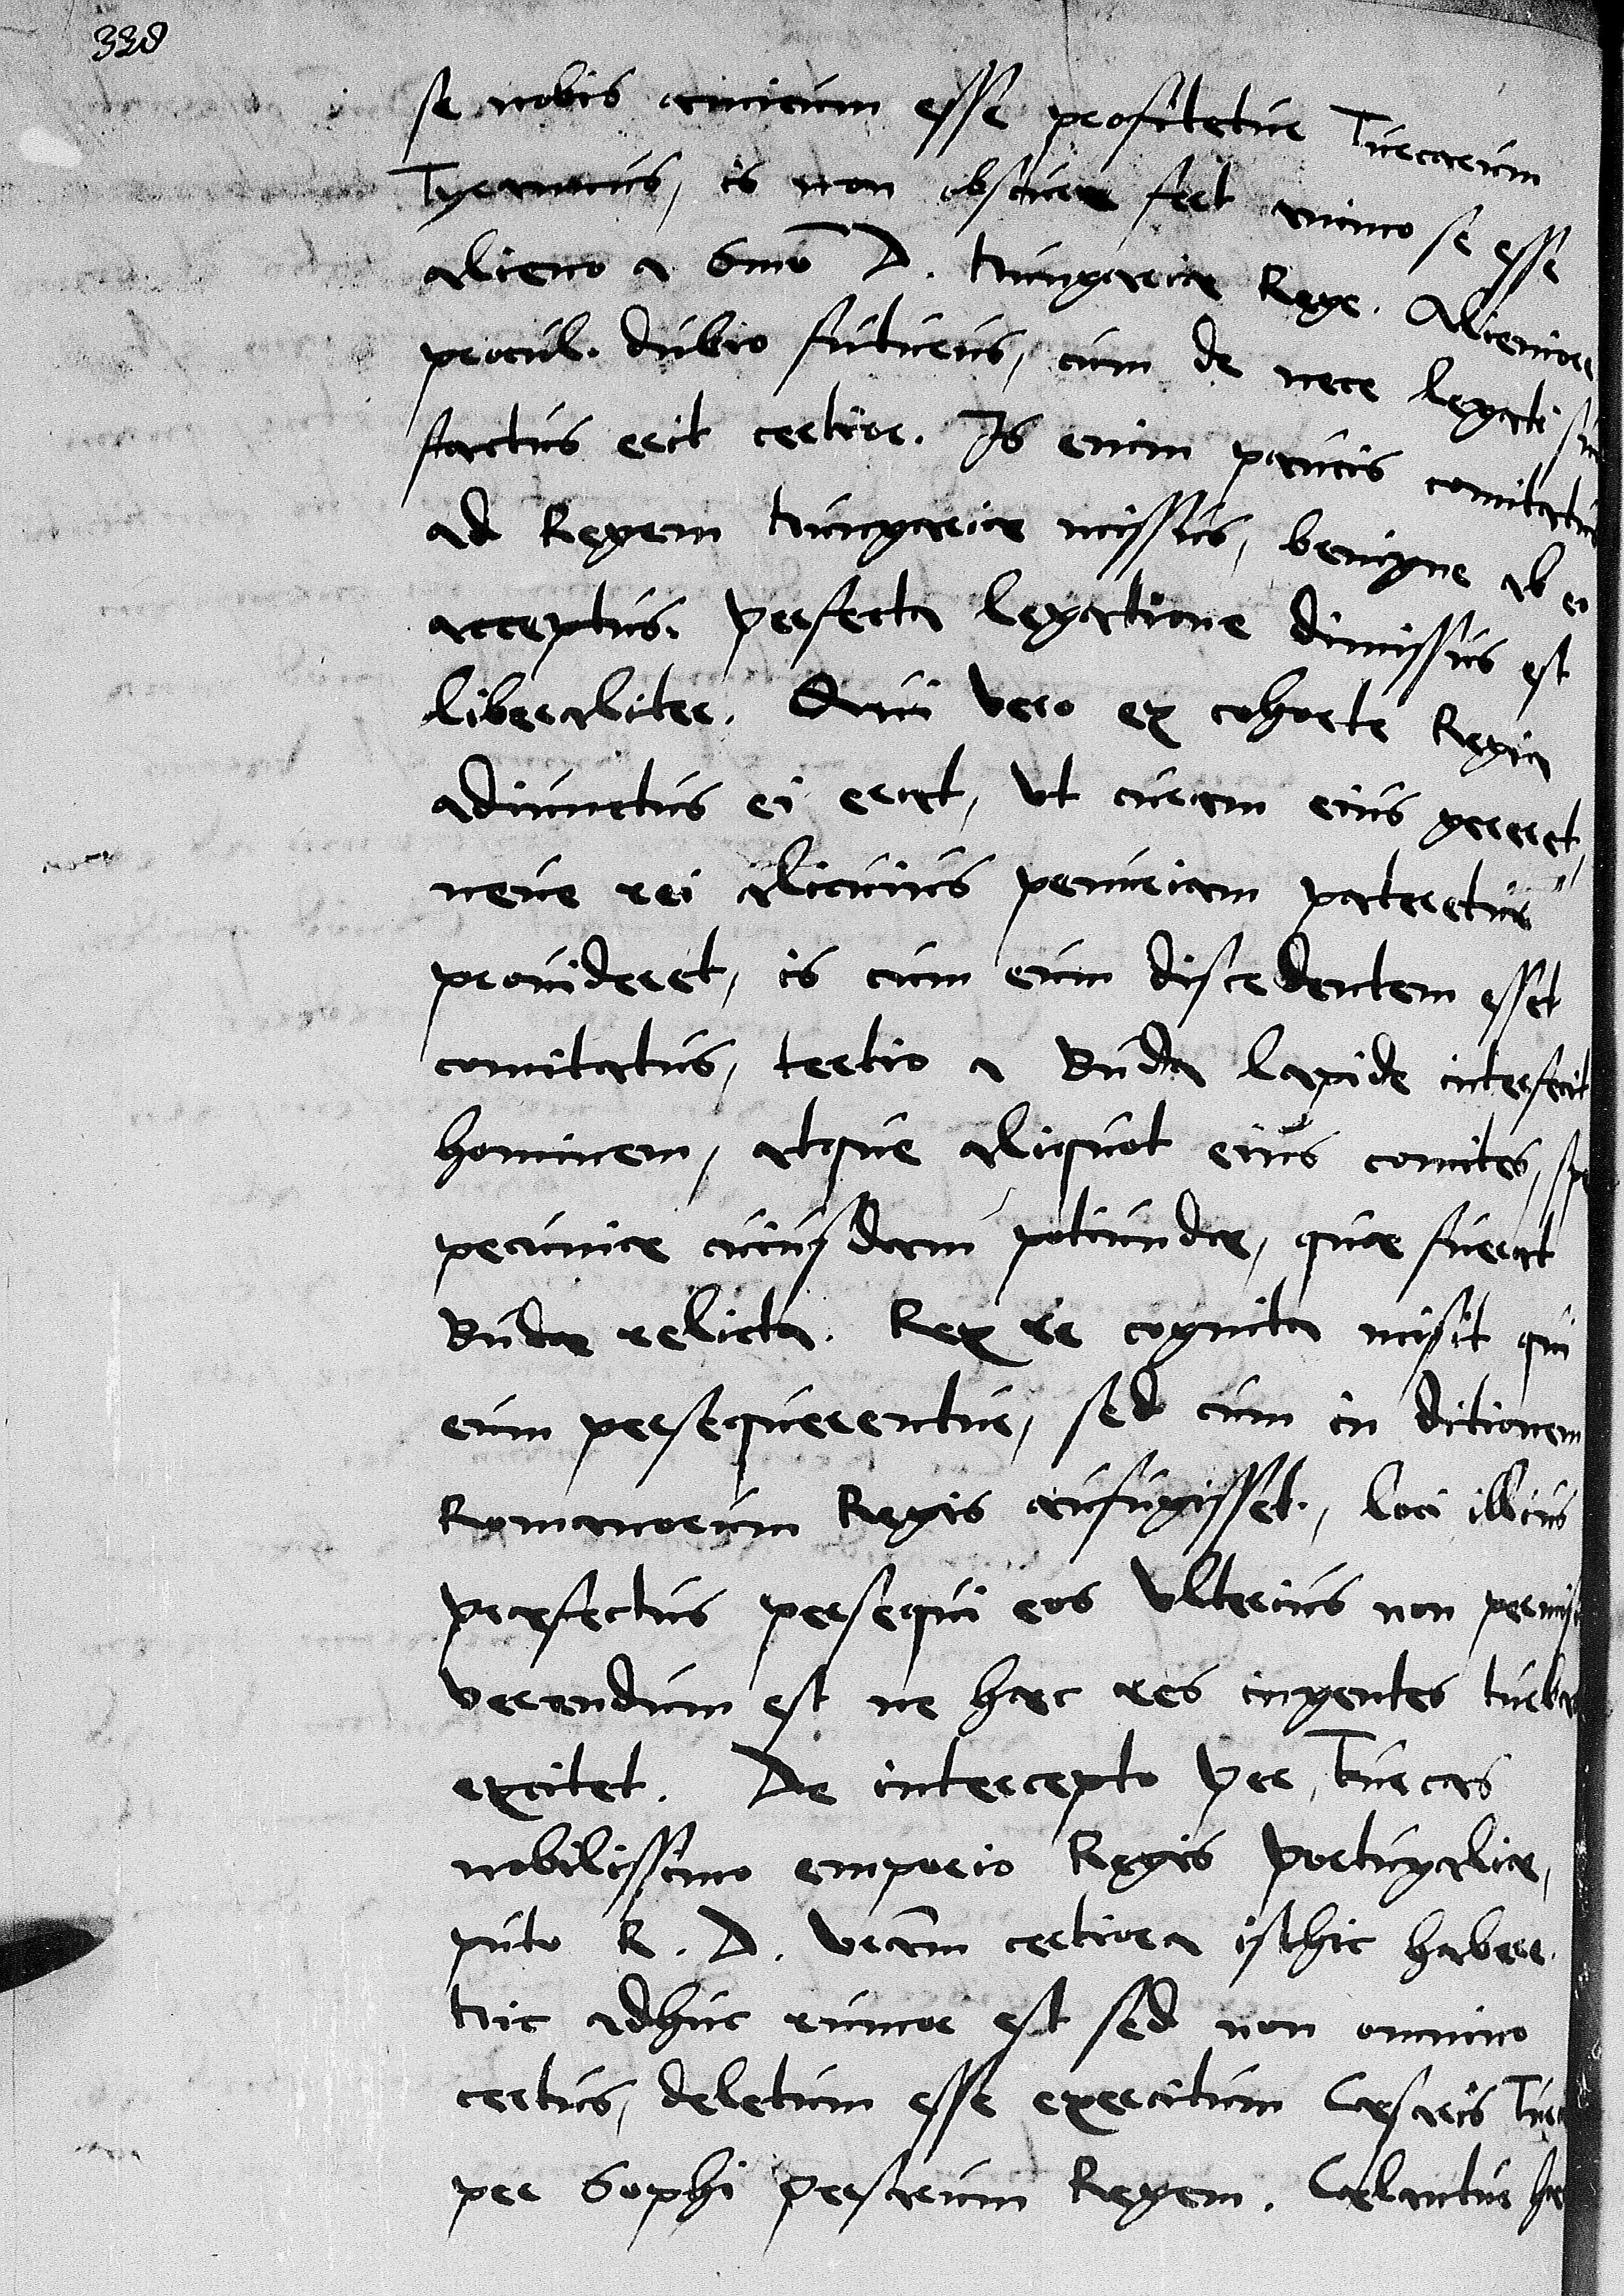 338
se nobis amicum esse profitetur Turcarum
Tyrannus, is non obscure fert animo se esse
alieno a Smo D. Hungariae Rege. Alieniore
procul. dubio futurus, cum de nece legati sui
factus erit certior. Is enim paucis comitatus
ad Regem Hungariae missus, benigne ab eo
acceptus. perfecta legatione dimissus est
liberaliter. Qui vero ex cohorte Regia
adiunctus ei erat, ut curam eius gereret,
neve rei alicuius penuriam pateretur
provideret, is cum eum discedentem esset
comitatus, tertio a Buda lapide interfecit
hominem, atque aliquot eius comites, spe
pecuniae cuiusdam potiundae, quae fuerat
Budae relicta. Rex re cognita misit qui
eum persequerentur, sed cum in ditionem
Romanorum Regis aufugisset, loci illius
praefectus persequi eos ulterius non permisit
verendum est ne haec res ingentes turbas
excitet. De intercepto per Turcas
nobilissimo emporio Regis Portugaliae,
puto R. D. Vram certiora isthic habere.
Hic adhuc rumor est sed non omnino
certus, deletum esse exercitum Caesaris Turc
per Sophi Persarum Regem. Celantur hae